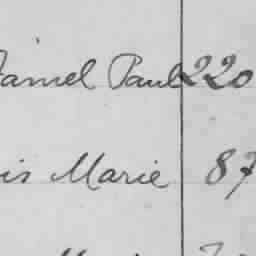 Daniel Paul 220
is Marie 87